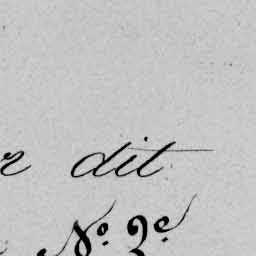 r dit
N° 2e